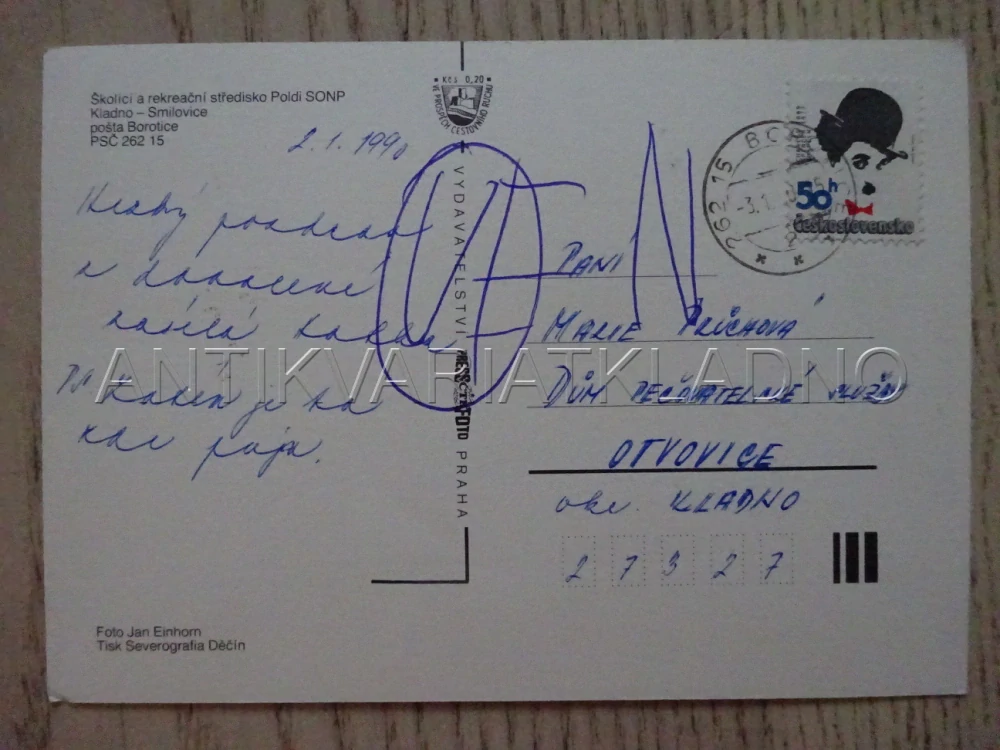 Školicí a rekreační středisko Poldi SONP
Kladno – Smilovice
pošta Borotice
PSČ 262 15
2.1.1990
Hezký pozdrav
z dovolené
zasílá
PS
je na
Kčs 0,20
VE PROSPĚCH CESTOVNÍHO RUCHU
VYDAVATELSTVÍ PRESSFOTO PRAHA
50h
Československo
262 15
-3.1.
PANÍ
MARIE PRŮCHOVÁ
DŮM PEČOVATELSKÉ SLUŽBY
OTVOVICE
okr. KLADNO
2 7 3 2 7
Foto Jan Einhorn
Tisk Severografia Děčín
ANTIKVARIATKLADNO